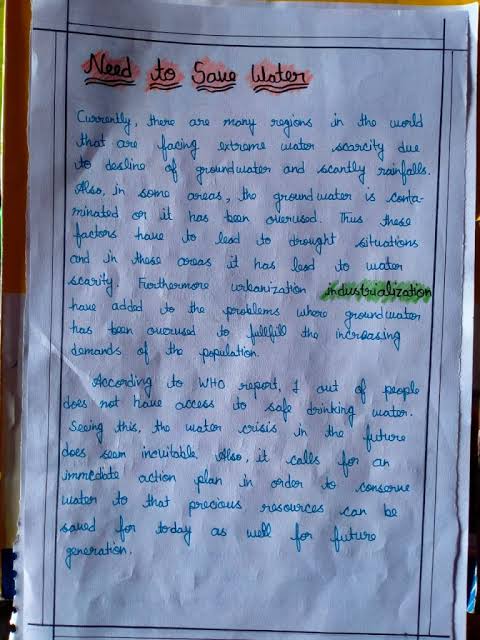 Need to Save Water
Currently, there are many regions in the world
that are facing extreme water scarcity due
to desline of groundwater and scantly rainfalls.
Also, in some areas, the groundwater is conta-
minated or it has been overused. Thus these
factors have to lead to drought situations
and in these areas it has lead to water
scarity. Furthermore urbanization industrialization
have added to the problems where groundwater
has been overused to fullfill the increasing
demands of the population.
According to WHO report, 1 out of people
does not have access to safe drinking water.
Seeing this, the water crisis in the future
does seem inevitable. Also, it calls for an
immediate action plan in order to conserve
water to that precious resources can be
saved for today as well for future
generation.